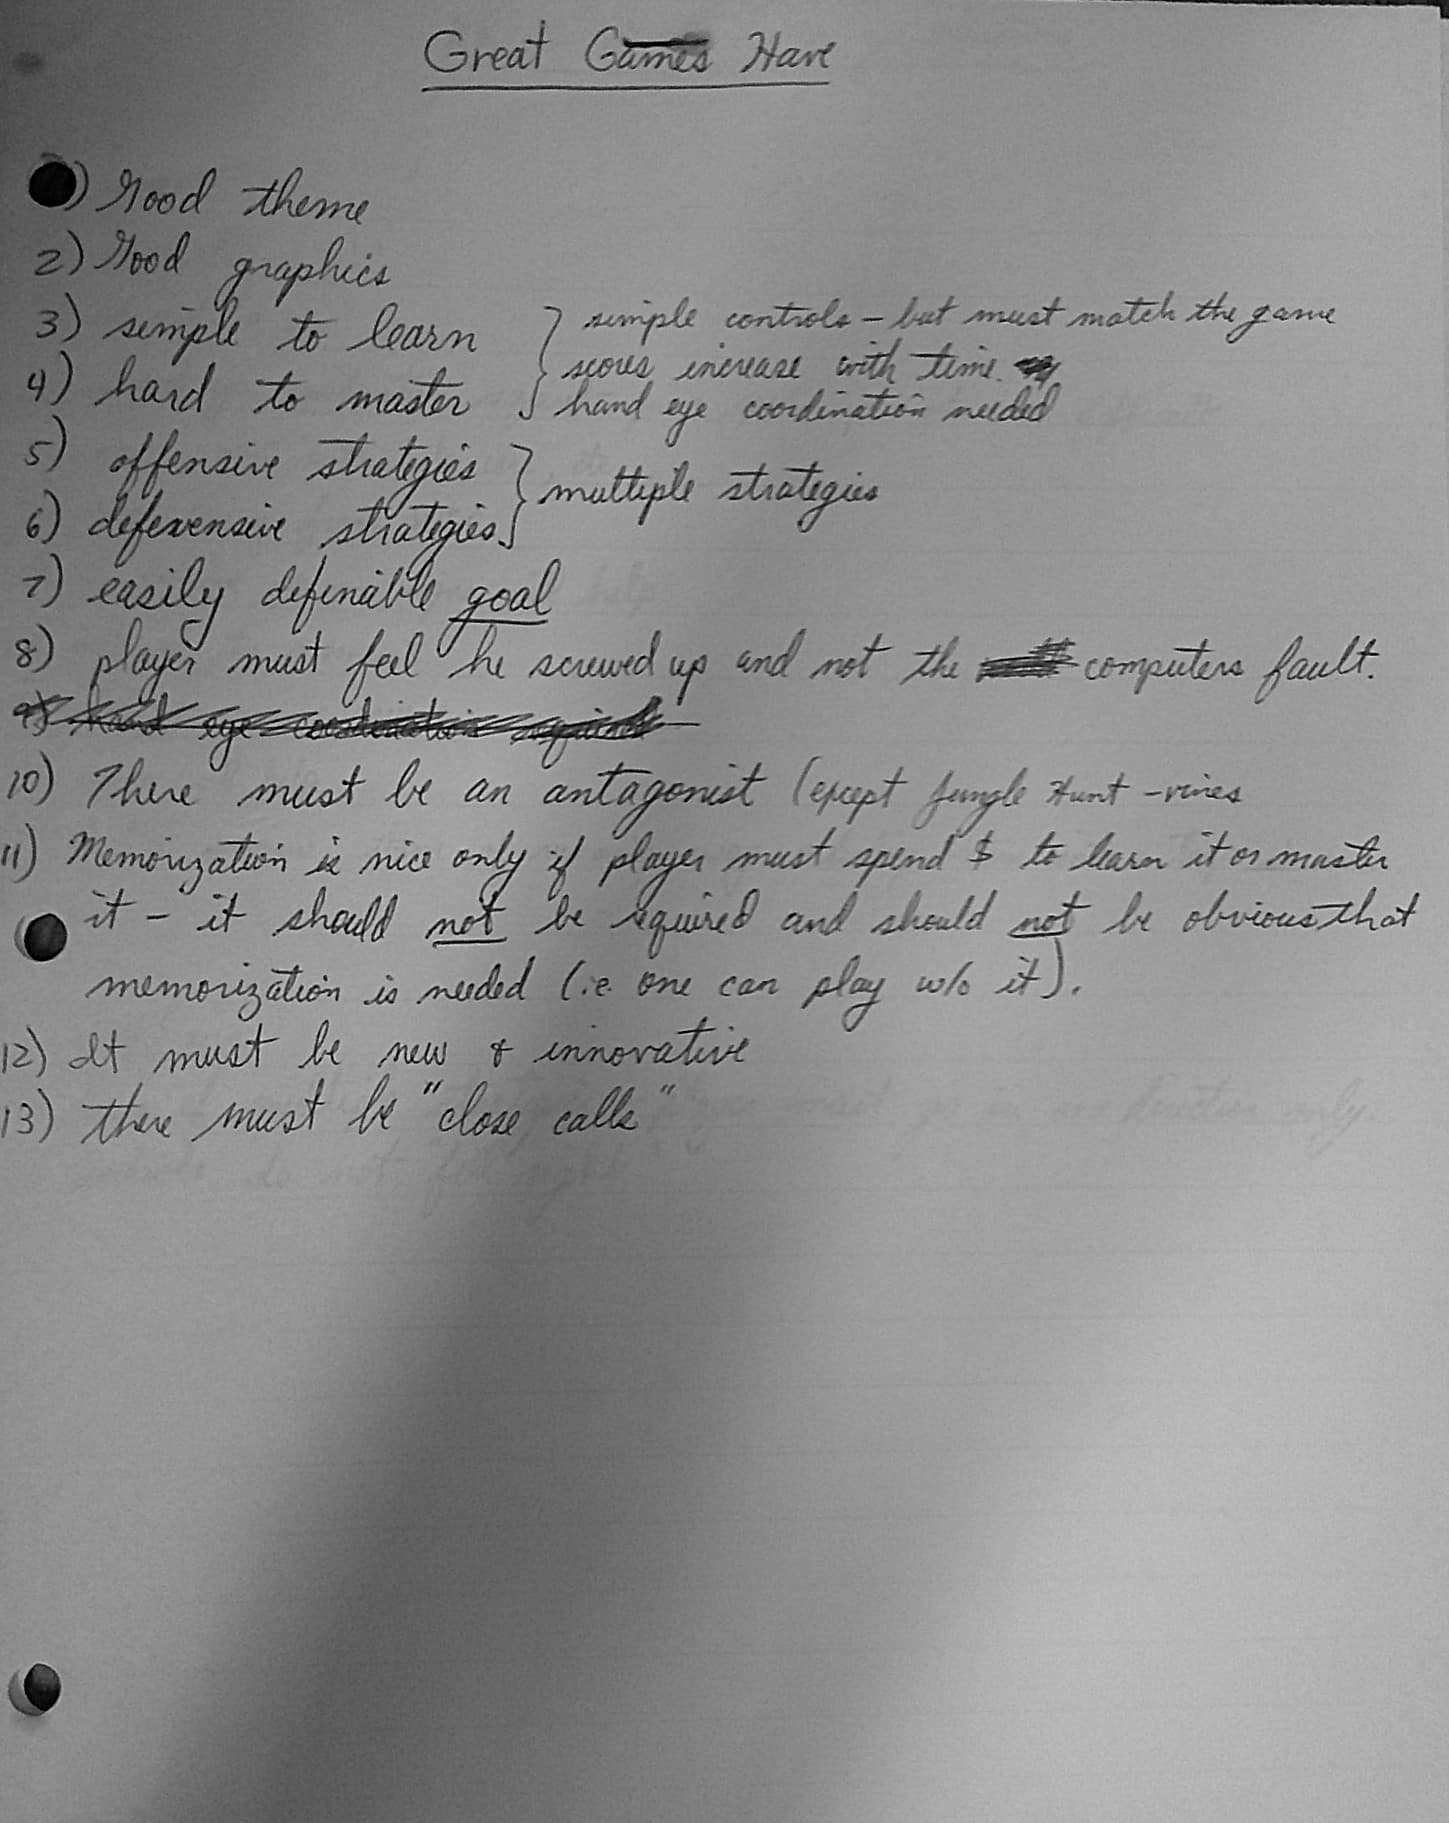 Great Games Have
) Good theme
2) Good graphics
3) simple to learn } simple controls - but must match the game
scores increase with time.
4) hard to master hand eye coordination needed
5) offensive strategies } multiple strategies
6) defensive strategies.
7) easily definable goal
8) player must feel he screwed up and not the computers fault.
9) hand eye coordination required
10) There must be an antagonist (except Jungle Hunt - vines
11) Memorization is nice only if player must spend $ to learn it or master
it - it should not be required and should not be obvious that
memorization is needed (i.e. one can play w/o it).
12) It must be new & innovative
13) there must be "close calls"